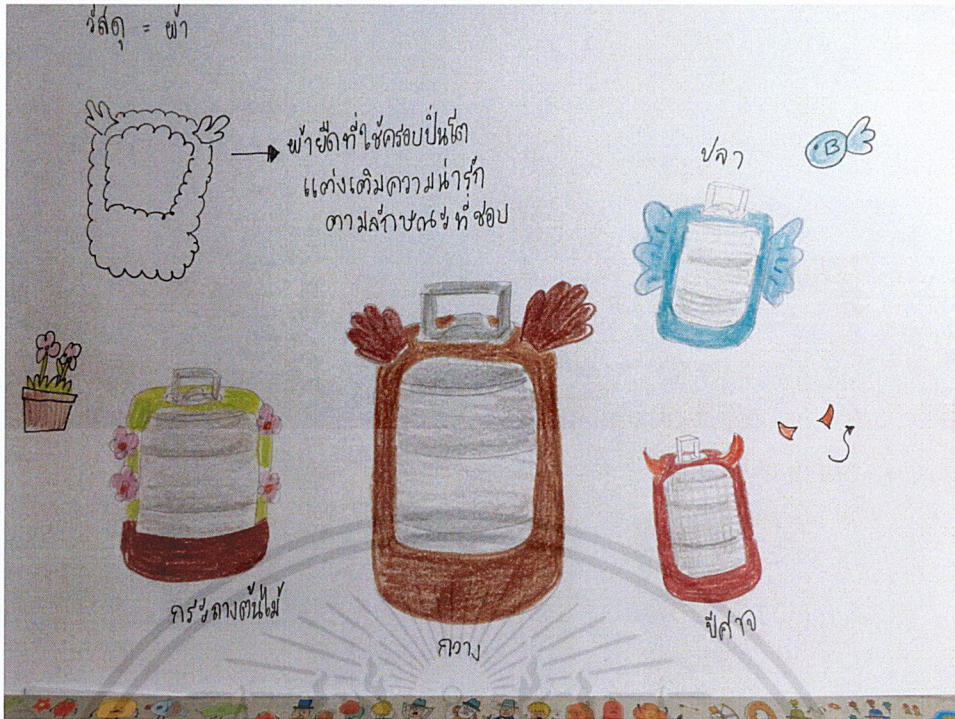 วัสดุ = ผ้า
ผ้ายืดที่ใช้ครอบปิ่นโต
แต่งเติมความน่ารัก
ตามลักษณะที่ชอบ
ปลา
B
กระถางต้นไม้
กวาง
ปีศาจ